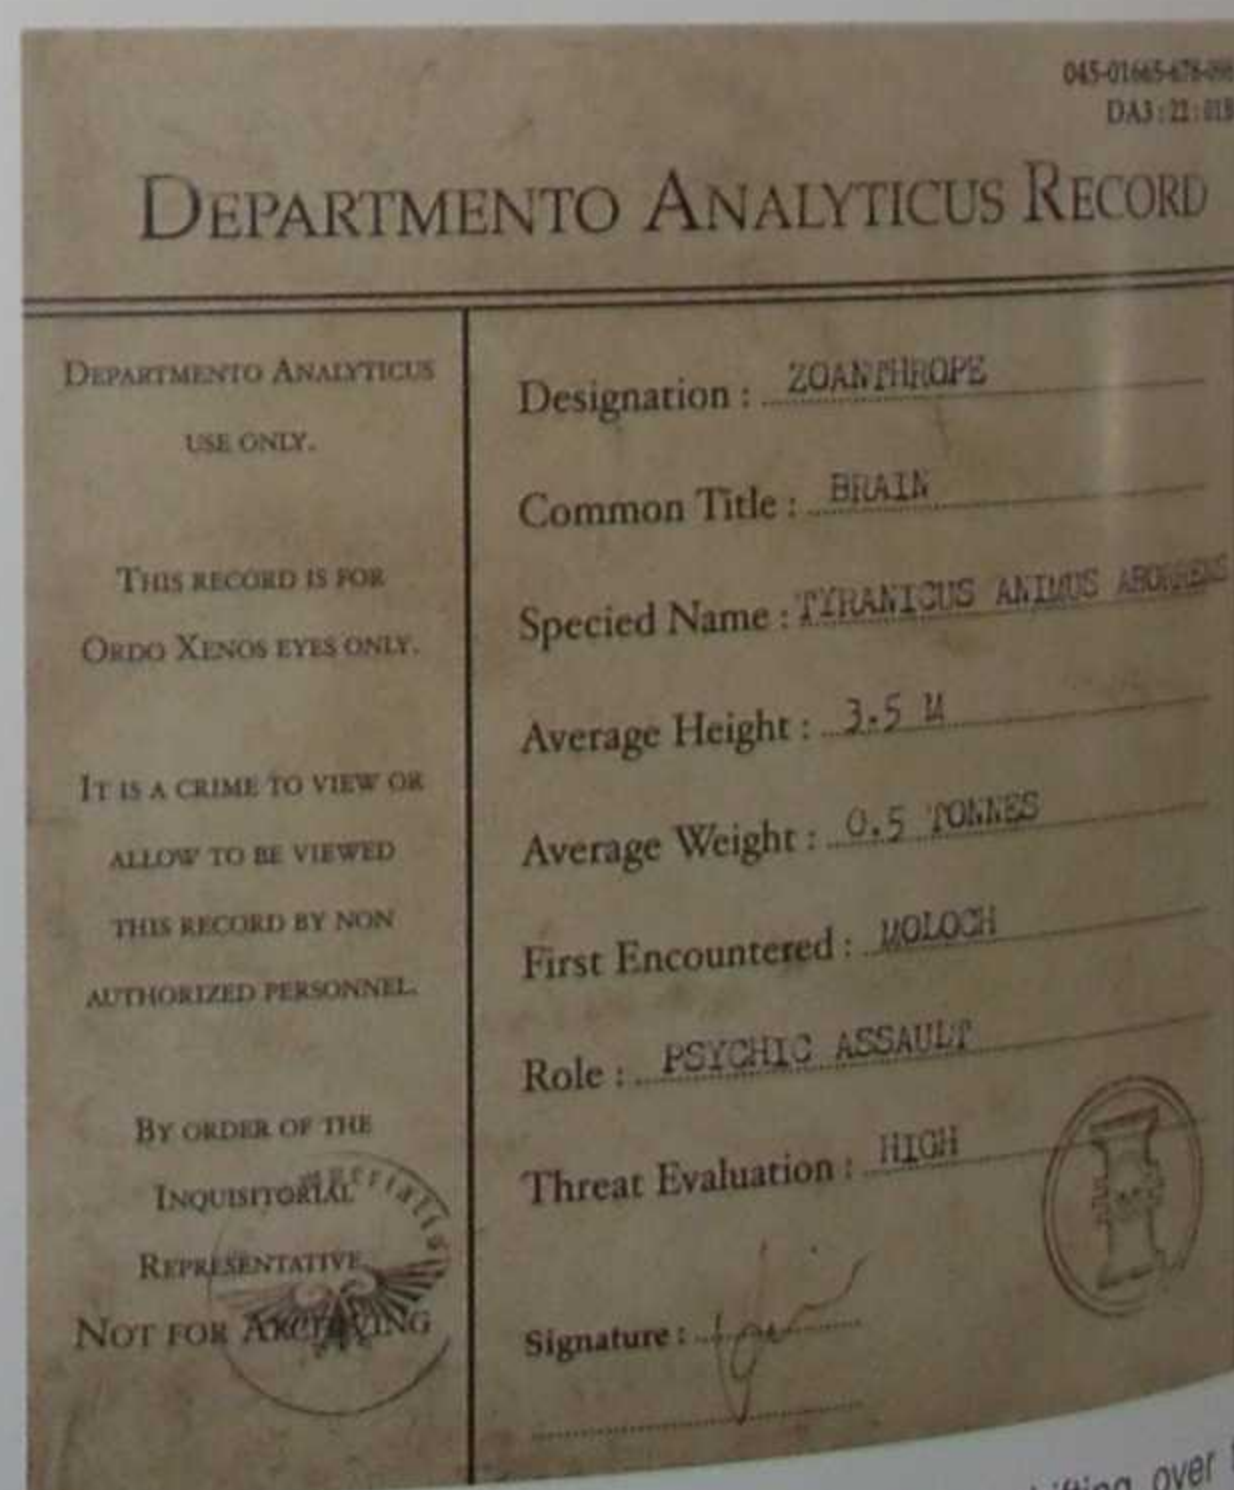 DA3:22:01B
DEPARTMENTO ANALYTICUS RECORD
DEPARTMENTO ANALYTICUS
USE ONLY.
THIS RECORD IS FOR
ORDO XENOS EYES ONLY.
IT IS A CRIME TO VIEW OR
ALLOW TO BE VIEWED
THIS RECORD BY NON
AUTHORIZED PERSONNEL.
BY ORDER OF THE
INQUISITORIAL
REPRESENTATIVE
NOT FOR ARCHIVING
Designation : ZOANTHROPE
Common Title : BRAIN
Specied Name : TYRANICUS ANIMUS
Average Height : 3.5 M
Average Weight : 0.5 TONNES
First Encountered : MOLOCH
Role : PSYCHIC ASSAULT
Threat Evaluation : HIGH
Signature :
over